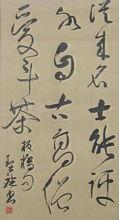 從來名士能評
水自古高僧
愛斗茶
板橋句